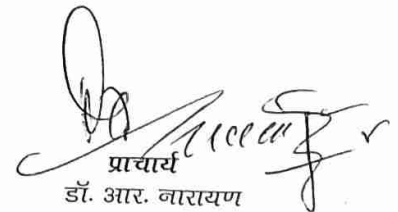 प्राचार्य
डॉ. आर. नारायण